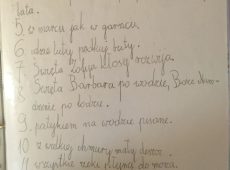 lata.
5. w marcu jak w garncu.
6. idzie luty podkuj buty.
7 Święta Zofija kłosy rozwija.
8 Święta Barbara po wodzie, Boże Naro-
dzenie po lodzie.
9. patykiem na wodzie pisane.
10 z wielkiej chmury mały deszcz.
11 wszystkie rzeki płyną do morza.